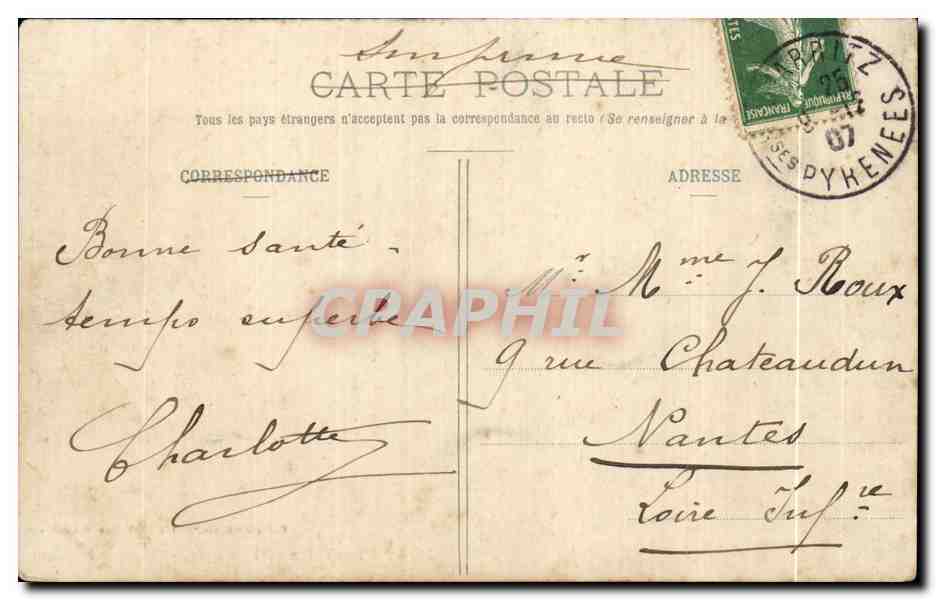 Imprimé
CARTE POSTALE
Tous les pays étrangers n'acceptent pas la correspondance au recto (Se renseigner à la
CORRESPONDANCE
ADRESSE
RÉPUBLIQUE
FRANÇAISE
ARRITZ
25
07
SES PYRENEES
Bonne santé -
temps superbe -
Charlotte
CPAPHIL
Mr. Mme J. Roux
9 rue Chateaudun
Nantes
Loire Infre